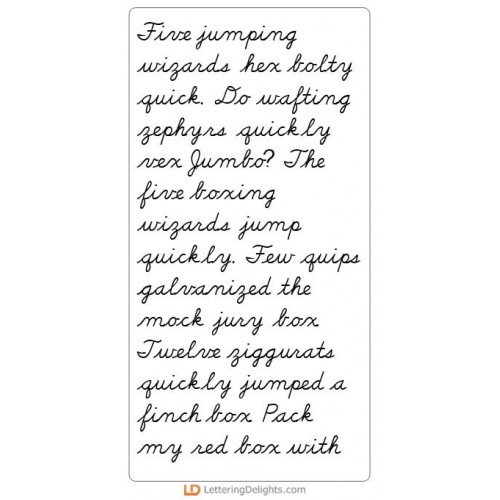 Five jumping
wizards hex bolty
quick. Do wafting
zephyrs quickly
vex Jumbo? The
five boxing
wizards jump
quickly. Few quips
galvanized the
mock jury box
Twelve ziggurats
quickly jumped a
finch box Pack
my red box with
LD LetteringDelights.com